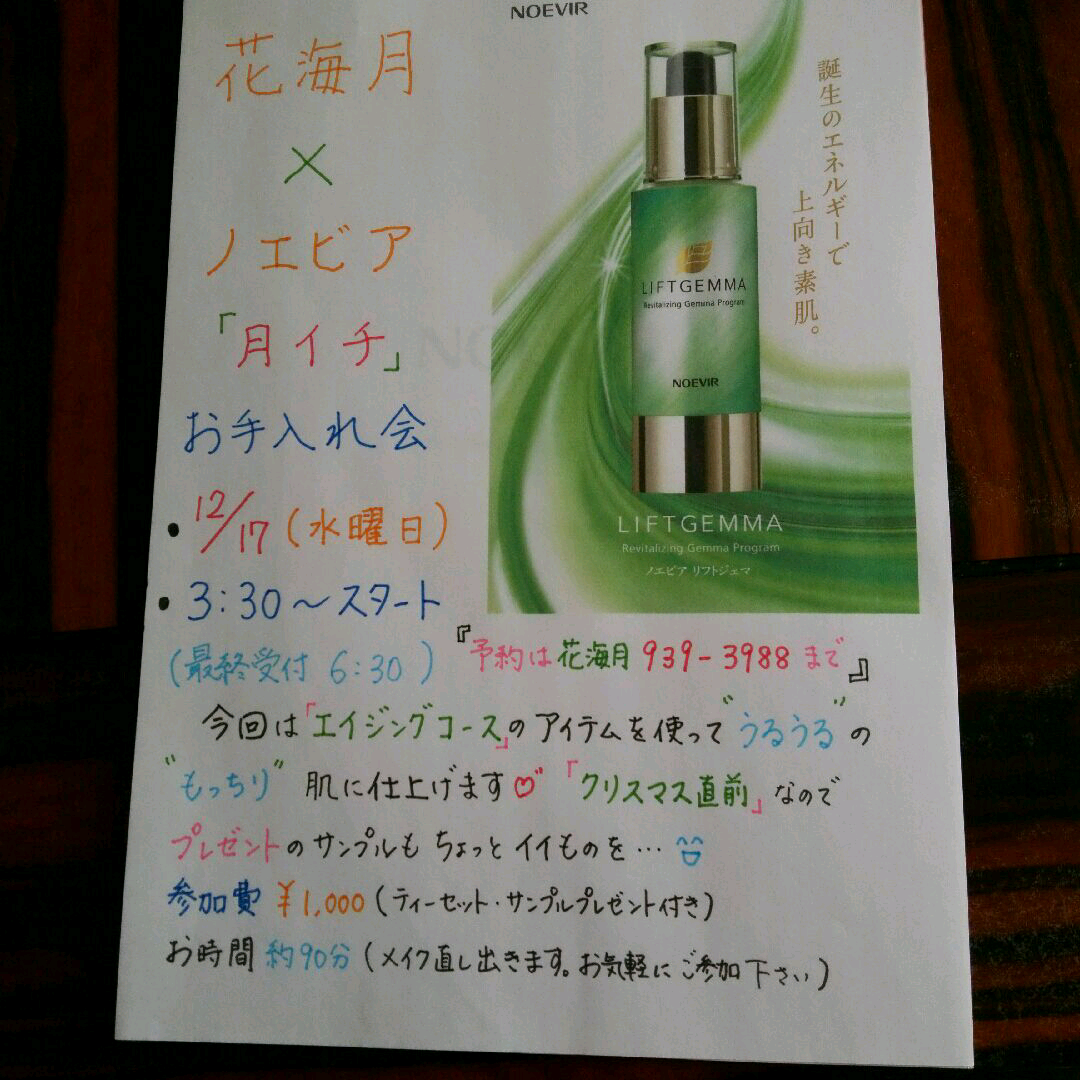 NOEVIR
花海月
×
ノエビア
「月イチ」
お手入れ会
誕生のエネルギーで
上向き素肌。
LIFTGEMMA
Revitalizing Gemma Program
NOEVIR
LIFTGEMMA
Revitalizing Gemma Program
ノエビア リフトジェマ
・12/17(水曜日)
・3:30〜スタート
(最終受付 6:30)
『予約は花海月 939-3988 まで』
今回は「エイジングコース」のアイテムを使って"うるうる"の
"もっちり" 肌に仕上げます♡゛「クリスマス直前」なので
プレゼントのサンプルも ちょっと イイものを…
参加費 ¥1,000 (ティーセット・サンプルプレゼント付き)
お時間 約90分 (メイク直し出きます。お気軽に ご参加 下さい)